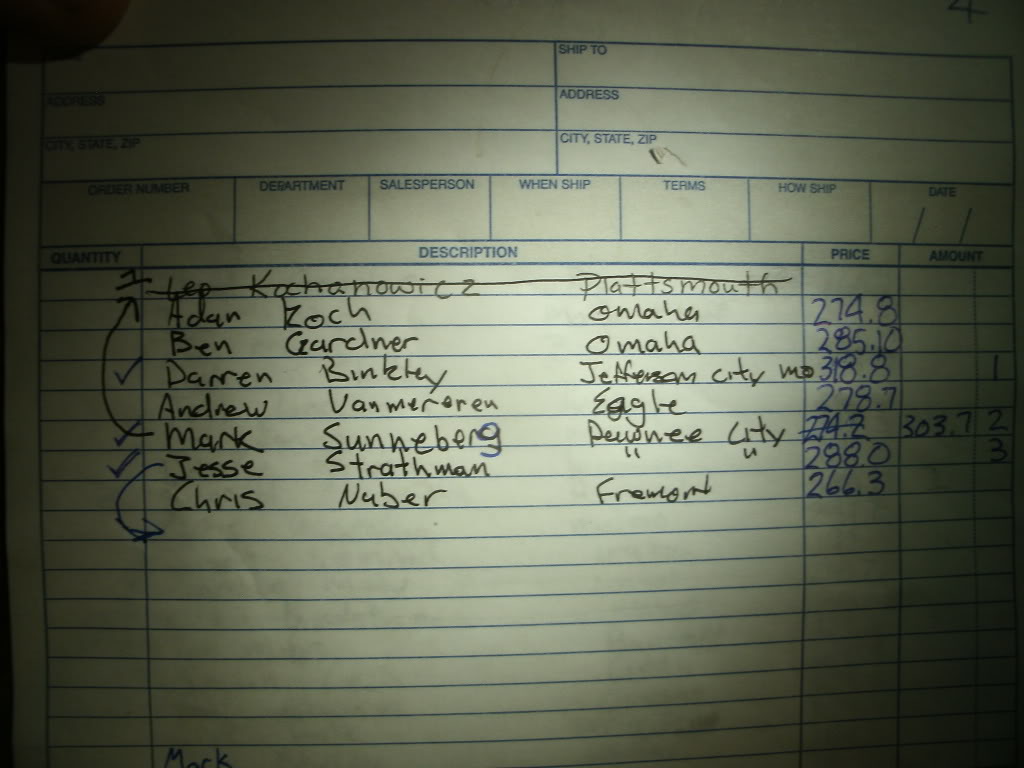 4
SHIP TO
ADDRESS ADDRESS
CITY, STATE, ZIP CITY, STATE, ZIP
ORDER NUMBER DEPARTMENT SALESPERSON WHEN SHIP TERMS HOW SHIP DATE
/ /
QUANTITY DESCRIPTION PRICE AMOUNT
Kochanowicz Plattsmouth
Adan Zoch Omaha 274.8
Ben Gardner Omaha 285.10
✓ Darren Binkley Jefferson city mo 318.8 1
Andrew Vanmeveren Eagle 278.7
✓ Mark Sunneberg Pewonee City 274.2 303.7 2
✓ Jesse Strathman " " 288.0 3
Chris Nuber Fremont 266.3
Mark